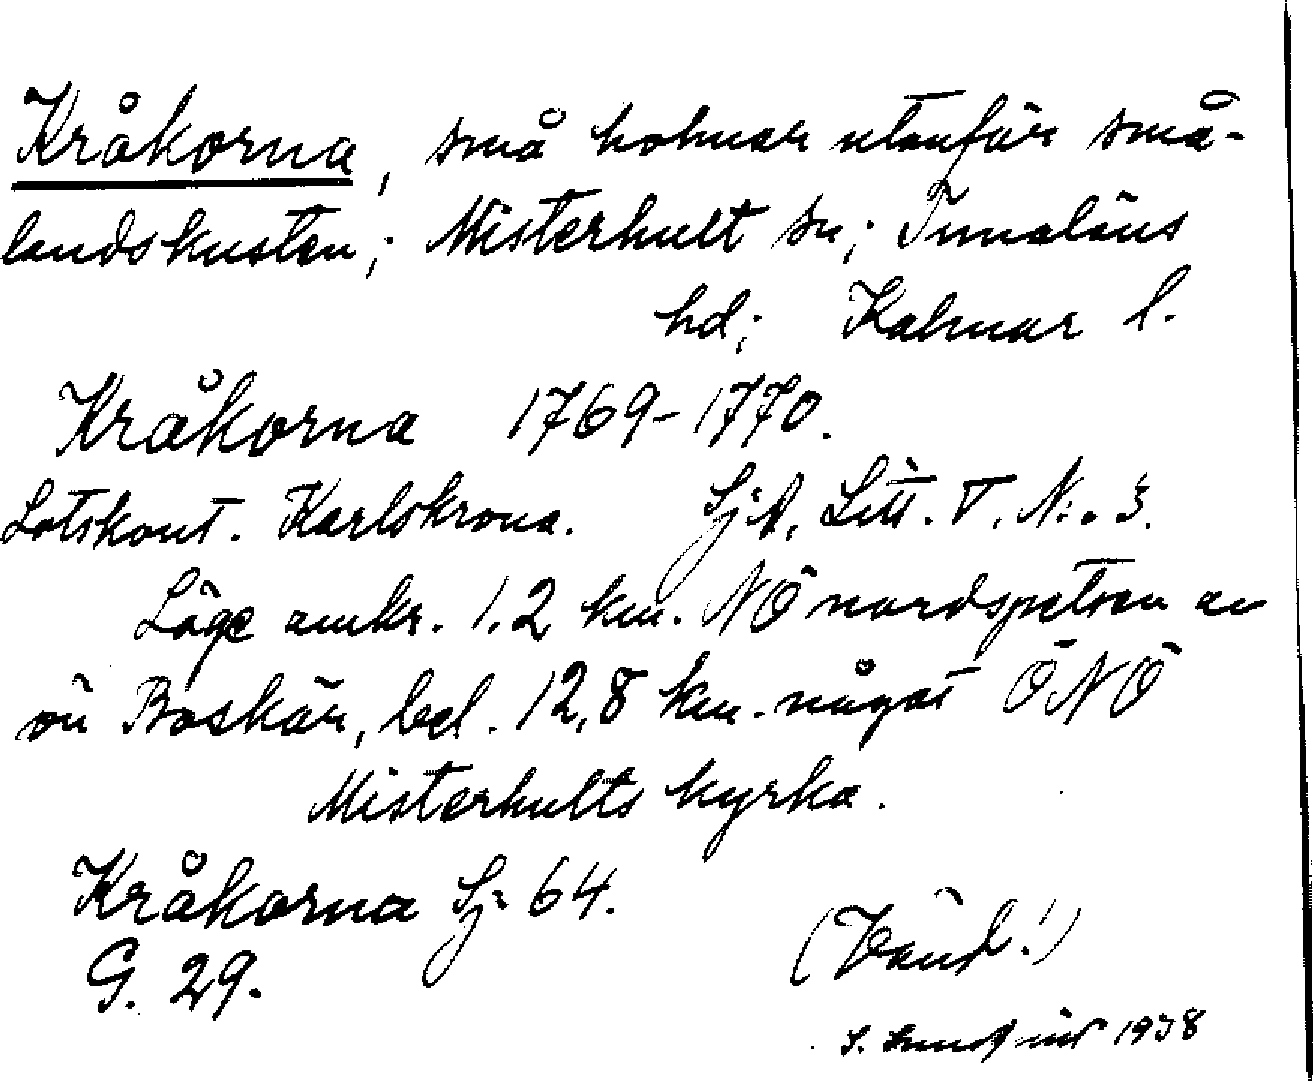 Kråkorna, små holmar utanför små-
landskusten; Misterhult sn; Tunaläns
hd; Kalmar l.
Kråkorna 1769-1770.
Lotskont. Karlskrona. Sj.A. Litt. V. N:o 3.
Läge omkr. 1,2 km. NÖ nordspetsen av
ön Boskär, bel. 12,8 km. något ÖNÖ
Misterhults kyrka.
Kråkorna Sj. 64.
G. 29.
(Vänd!)
S. 1938